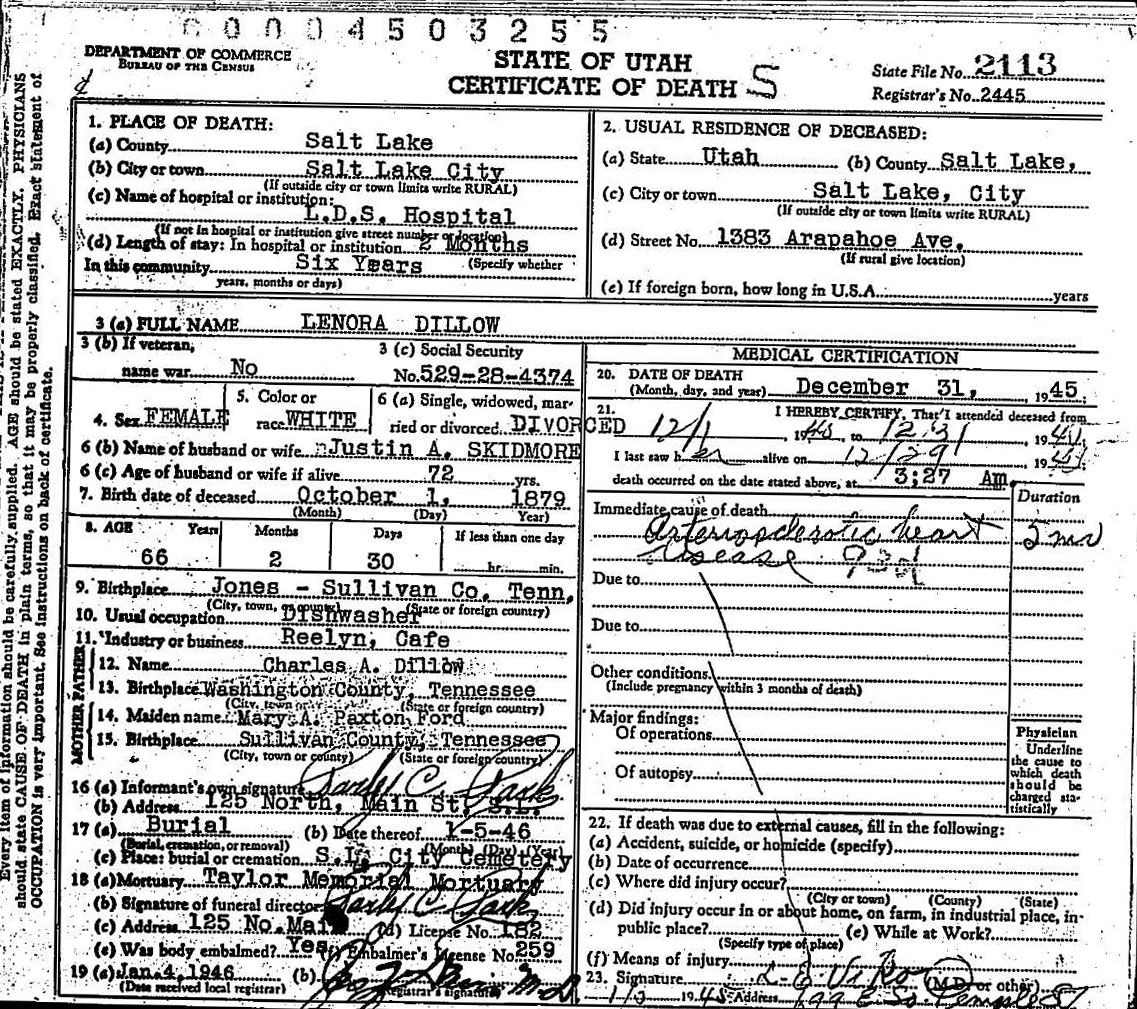 0004503255
DEPARTMENT OF COMMERCE
BUREAU OF THE CENSUS
STATE OF UTAH
CERTIFICATE OF DEATH S
State File No. 2113
Registrar's No. 2445
1. PLACE OF DEATH:
(a) County Salt Lake
(b) City or town Salt Lake City
(If outside city or town limits write RURAL)
(c) Name of hospital or institution:
L.D.S. Hospital
(If not in hospital or institution give street number or location)
(d) Length of stay: In hospital or institution 2 Months
In this community Six Years (Specify whether
years, months or days)
2. USUAL RESIDENCE OF DECEASED:
(a) State Utah (b) County Salt Lake,
(c) City or town Salt Lake, City
(If outside city or town limits write RURAL)
(d) Street No. 1383 Arapahoe Ave.
(If rural give location)
(e) If foreign born, how long in U.S.A. years
3 (a) FULL NAME LENORA DILLOW
3 (b) If veteran,
name war No
3 (c) Social Security
No. 529-28-4374
4. Sex FEMALE
5. Color or
race WHITE
6 (a) Single, widowed, mar-
ried or divorced DIVORCED
6 (b) Name of husband or wife Justin A. SKIDMORE
6 (c) Age of husband or wife if alive 72 yrs.
7. Birth date of deceased October 1, 1879
(Month) (Day) Year)
8. AGE Years Months Days If less than one day
66 2 30 hr. min.
9. Birthplace Jones - Sullivan Co. Tenn.
(City, town, or county) (State or foreign country)
10. Usual occupation Dishwasher
11. Industry or business Reelyn, Cafe
FATHER
12. Name Charles A. Dillow
13. Birthplace Washington County, Tennessee
(City, town or county) (State or foreign country)
MOTHER
14. Maiden name Mary A. Paxton Ford
15. Birthplace Sullivan County, Tennessee
(City, town or county) (State or foreign country)
16 (a) Informant's own signature
(b) Address 125 North, Main St. S.L.
17 (a) Burial (b) Date thereof 1-5-46
(Burial, cremation, or removal) (Month) (Day) (Year)
(c) Place: burial or cremation S.L. City Cemetery
18 (a) Mortuary Taylor Memorial Mortuary
(b) Signature of funeral director
(c) Address 125 No. Main (d) License No. 182
(e) Was body embalmed? Yes (f) Embalmer's License No. 259
19 (a) Jan. 4, 1946 (b)
(Date received local registrar) Registrar's signature) M.D.
MEDICAL CERTIFICATION
20. DATE OF DEATH
(Month, day, and year) December 31, 1945.
21. I HEREBY CERTIFY, That I attended deceased from
12/1, 19 to 12/31, 19
I last saw her alive on 12/29 19
death occurred on the date stated above, at 3:27 Am.
Immediate cause of death Duration
Arteriosclerotic heart
disease 93d
Due to
Due to
Other conditions
(Include pregnancy within 3 months of death)
Major findings:
Of operations
Of autopsy
Physician
Underline
the cause to
which death
should be
charged sta-
tistically
22. If death was due to external causes, fill in the following:
(a) Accident, suicide, or homicide (specify)
(b) Date of occurrence
(c) Where did injury occur?
(City or town) (County) (State)
(d) Did injury occur in or about home, on farm, in industrial place, in-
public place? (e) While at Work?
(Specify type of place)
(f) Means of injury
23. Signature (M.D. or other)
1945 Address 199 E. So. Temple St
Every item of information should be carefully supplied. AGE should be stated EXACTLY. PHYSICIANS
should state CAUSE OF DEATH in plain terms, so that it may be properly classified. Exact statement of
OCCUPATION is very important. See instructions on back of certificate.